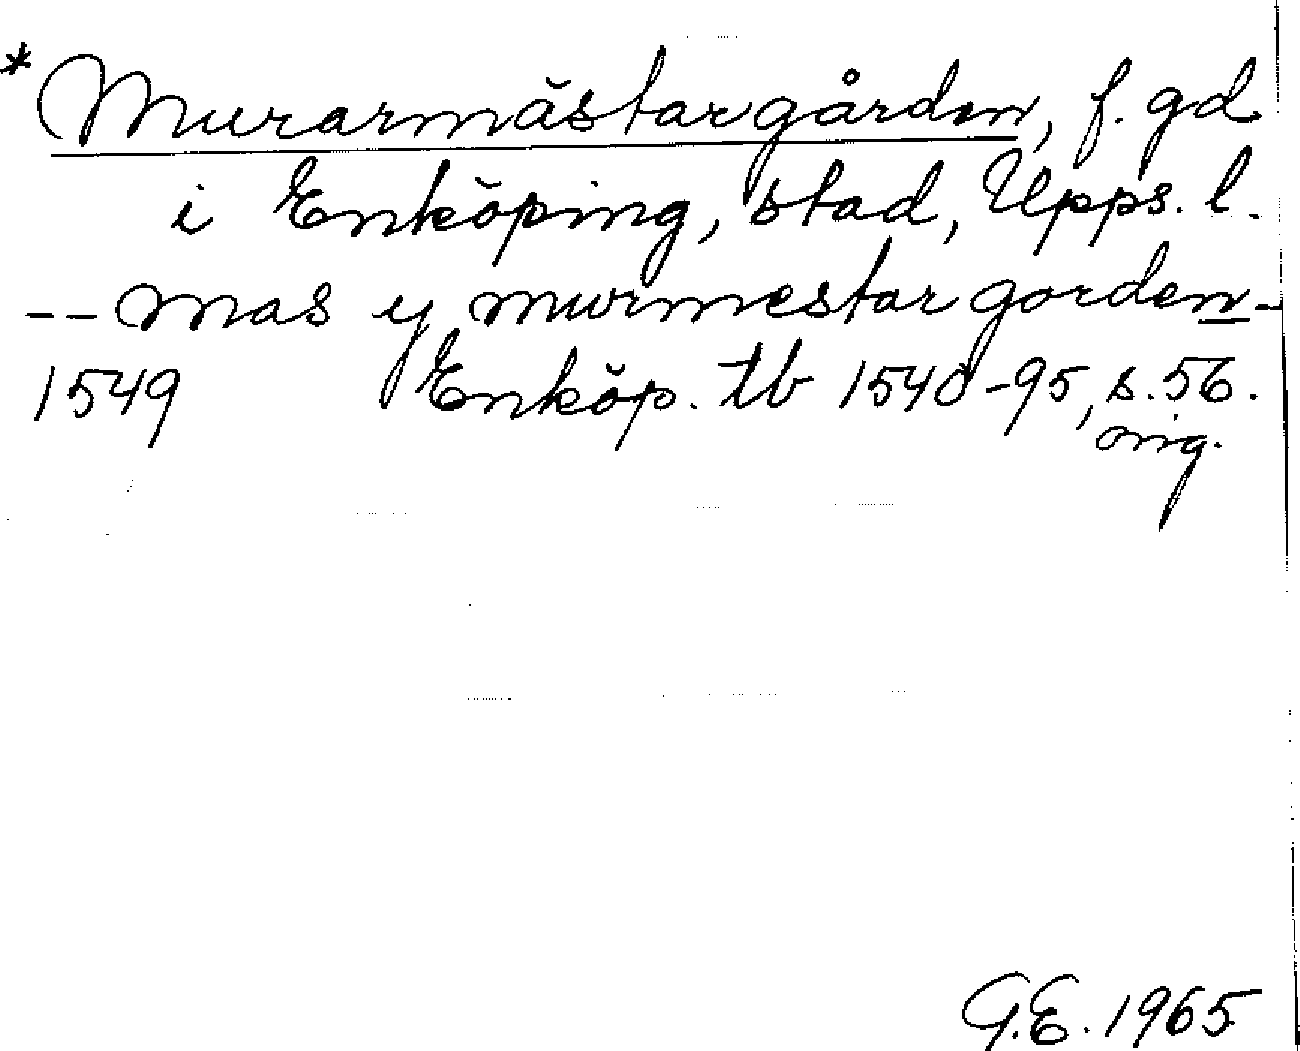 * Murarmästargården, f. gd
i Enköping, stad, Upps. l.
-- mas y murmestar gorden -
1549 Enköp. tb 1540-95, s. 56.
orig.
G.E. 1965